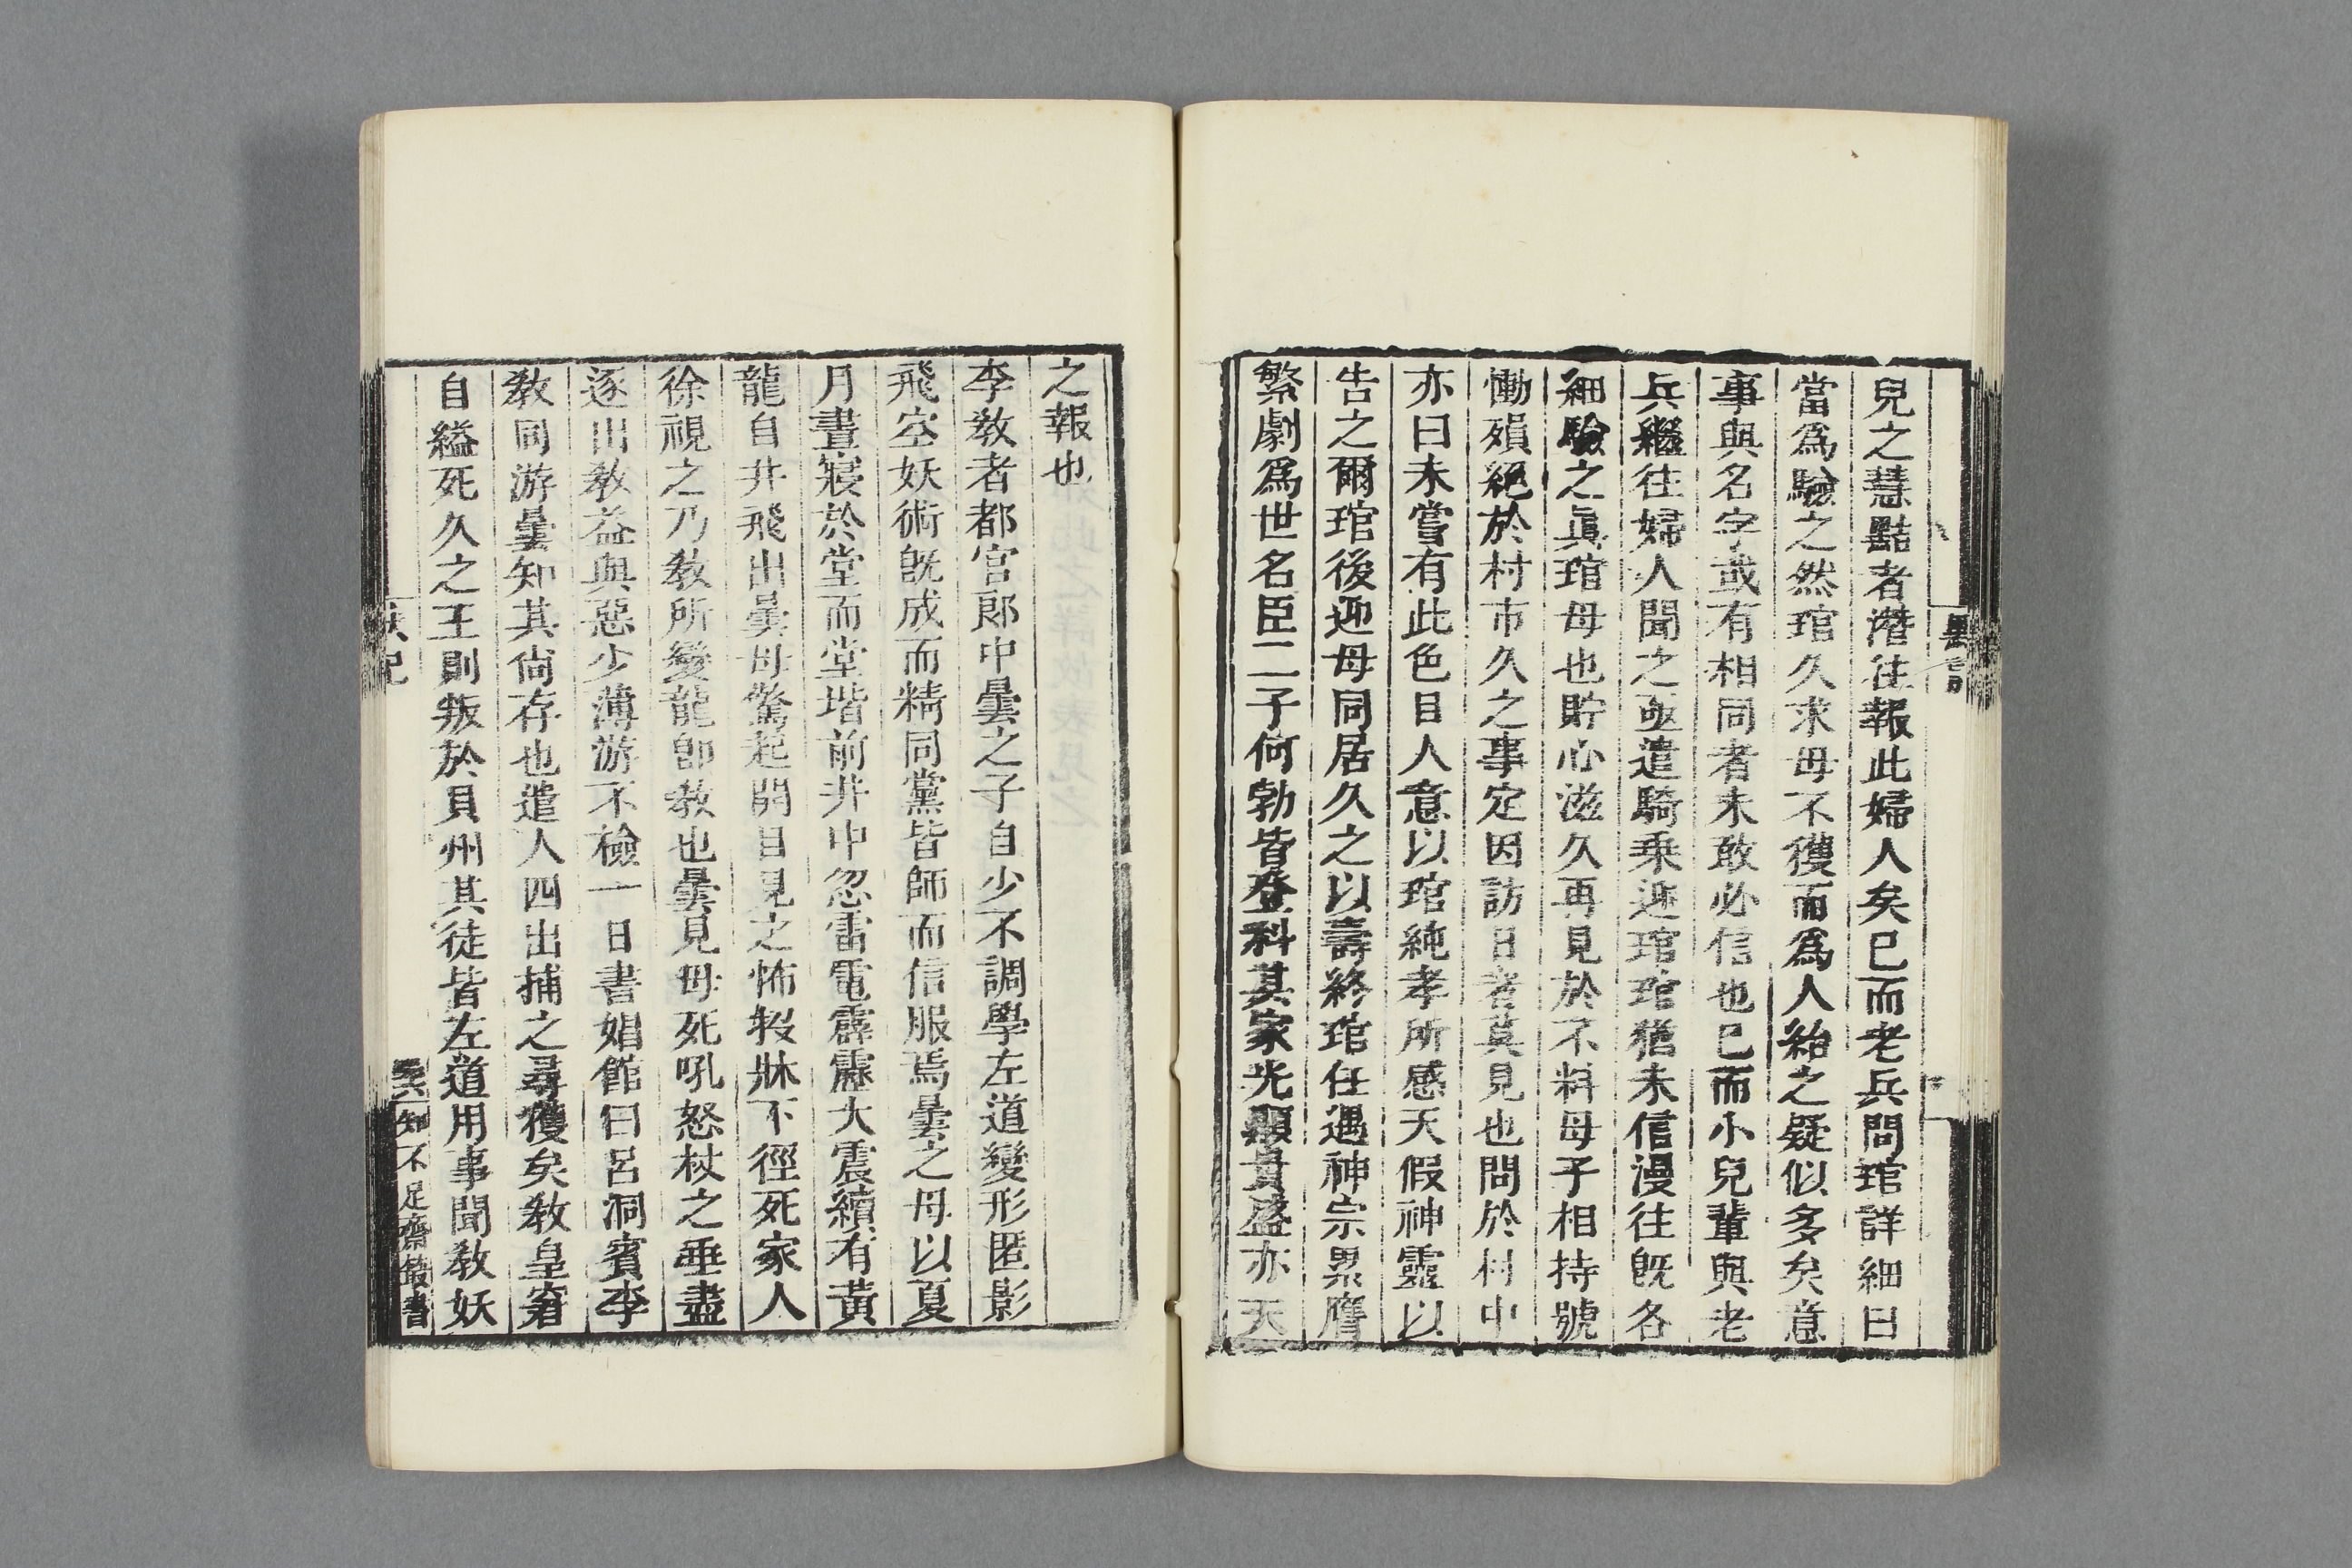 兒之慧黠者潛往報此婦人矣已而老兵問琯詳細曰
當爲驗之然琯久求母不獲而爲人紿之疑似多矣意
事與名字或有相同者未敢必信也已而小兒輩與老
兵繼往婦人聞之亟遣騎乘迎琯琯猶未信漫往旣各
細驗之眞琯母也貯心滋久再見於不料母子相持號
慟殞絕於村市久之事定因訪日者莫見也問於村中
亦曰未嘗有此色目人意以琯純孝所感天假神靈以
告之爾琯後迎母同居久之以壽終琯任遇神宗累膺
繁劇爲世名臣二子何勃皆登科其家光顯貴盛亦天
之報也
李敎者都官郎中曇之子自少不調學左道變形匿影
飛空妖術旣成而精同黨皆師而信服焉曇之母以夏
月晝寢於堂而堂堦前井中忽雷電霹靂大震續有黃
龍自井飛出曇母驚起開目見之怖投牀下徑死家人
徐視之乃敎所變龍卽敎也曇見母死吼怒杖之垂盡
逐出敎益與惡少薄游不檢一日書娼館曰呂洞賓李
敎同游曇知其尙存也遣人四出捕之尋獲矣敎皇窘
自縊死久之王則叛於貝州其徒皆左道用事聞敎妖
知不足齋叢書